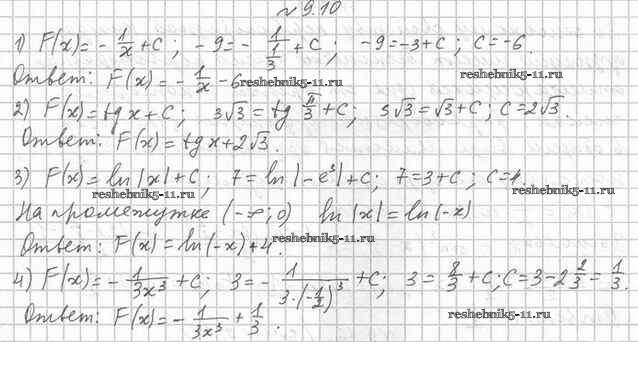 № 9.10
1) F(x) = - 1/x + C ; -9 = - 1/(1/3) + C ; -9 = -3 + C ; C = -6.
Ответ: F(x) = - 1/x - 6 reshebnik5-11.ru reshebnik5-11.ru
2) F(x) = tg x + C ; 3√3 = tg π/3 + C ; 3√3 = √3 + C ; C = 2√3.
Ответ: F(x) = tg x + 2√3.
3) F(x) = ln |x| + C ; 7 = ln |-e³| + C ; 7 = 3 + C ; C = 4.
reshebnik5-11.ru reshebnik5-11.ru
На промежутке (-∞; 0) ln |x| = ln(-x)
Ответ: F(x) = ln(-x) + 4. reshebnik5-11.ru
4) F(x) = - 1/3x³ + C ; 3 = - 1/(3·(-1/2)³) + C ; 3 = 8/3 + C ; C = 3 - 2 2/3 = 1/3.
Ответ: F(x) = - 1/3x³ + 1/3. reshebnik5-11.ru